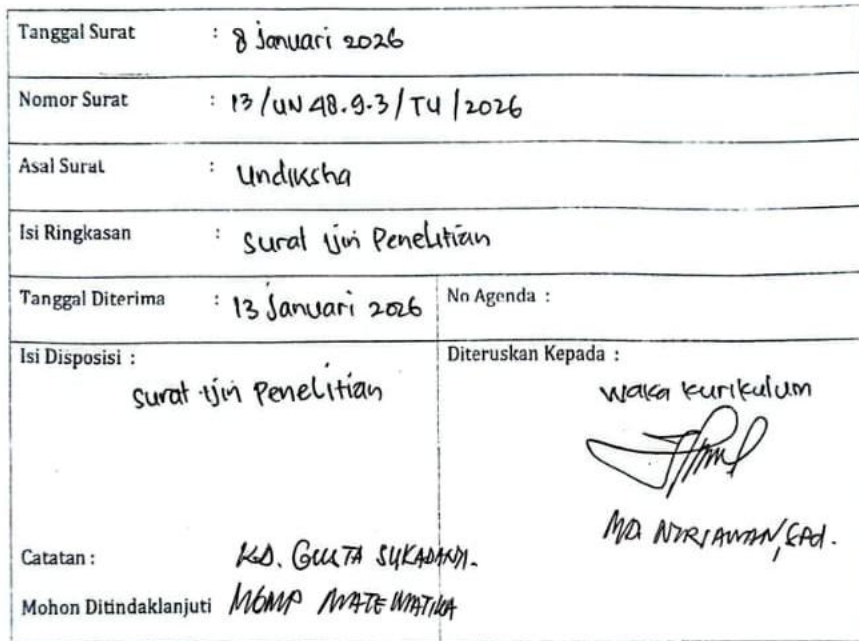 Tanggal Surat : 8 Januari 2026
Nomor Surat : 13/UN48.9.3/TU/2026
Asal Surat : Undiksha
Isi Ringkasan : Surat ijin Penelitian
Tanggal Diterima : 13 Januari 2026 No Agenda :
Isi Disposisi : Diteruskan Kepada :
Surat ijin Penelitian waka kurikulum
MD. NURIAWAN, S.Pd.
Catatan : KD. GUITA SUKADANA.
Mohon Ditindaklanjuti MGMP MATEMATIKA